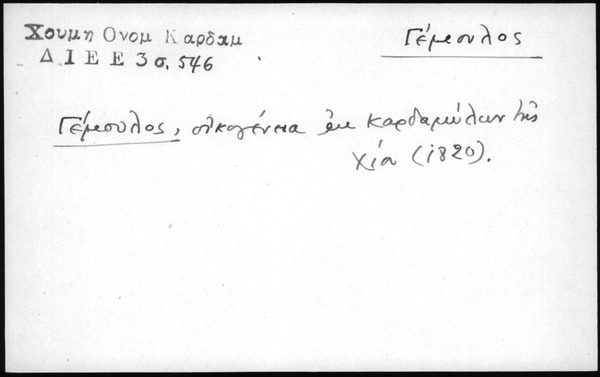 Χουμη Ονομ Καρδαμ
Δ Ι Ε Ε 3 σ. 546
Γέμσουλος
Γέμσουλος, οἰκογένεια ἐκ Καρδαμύλων τῆς
Χίου (1820).